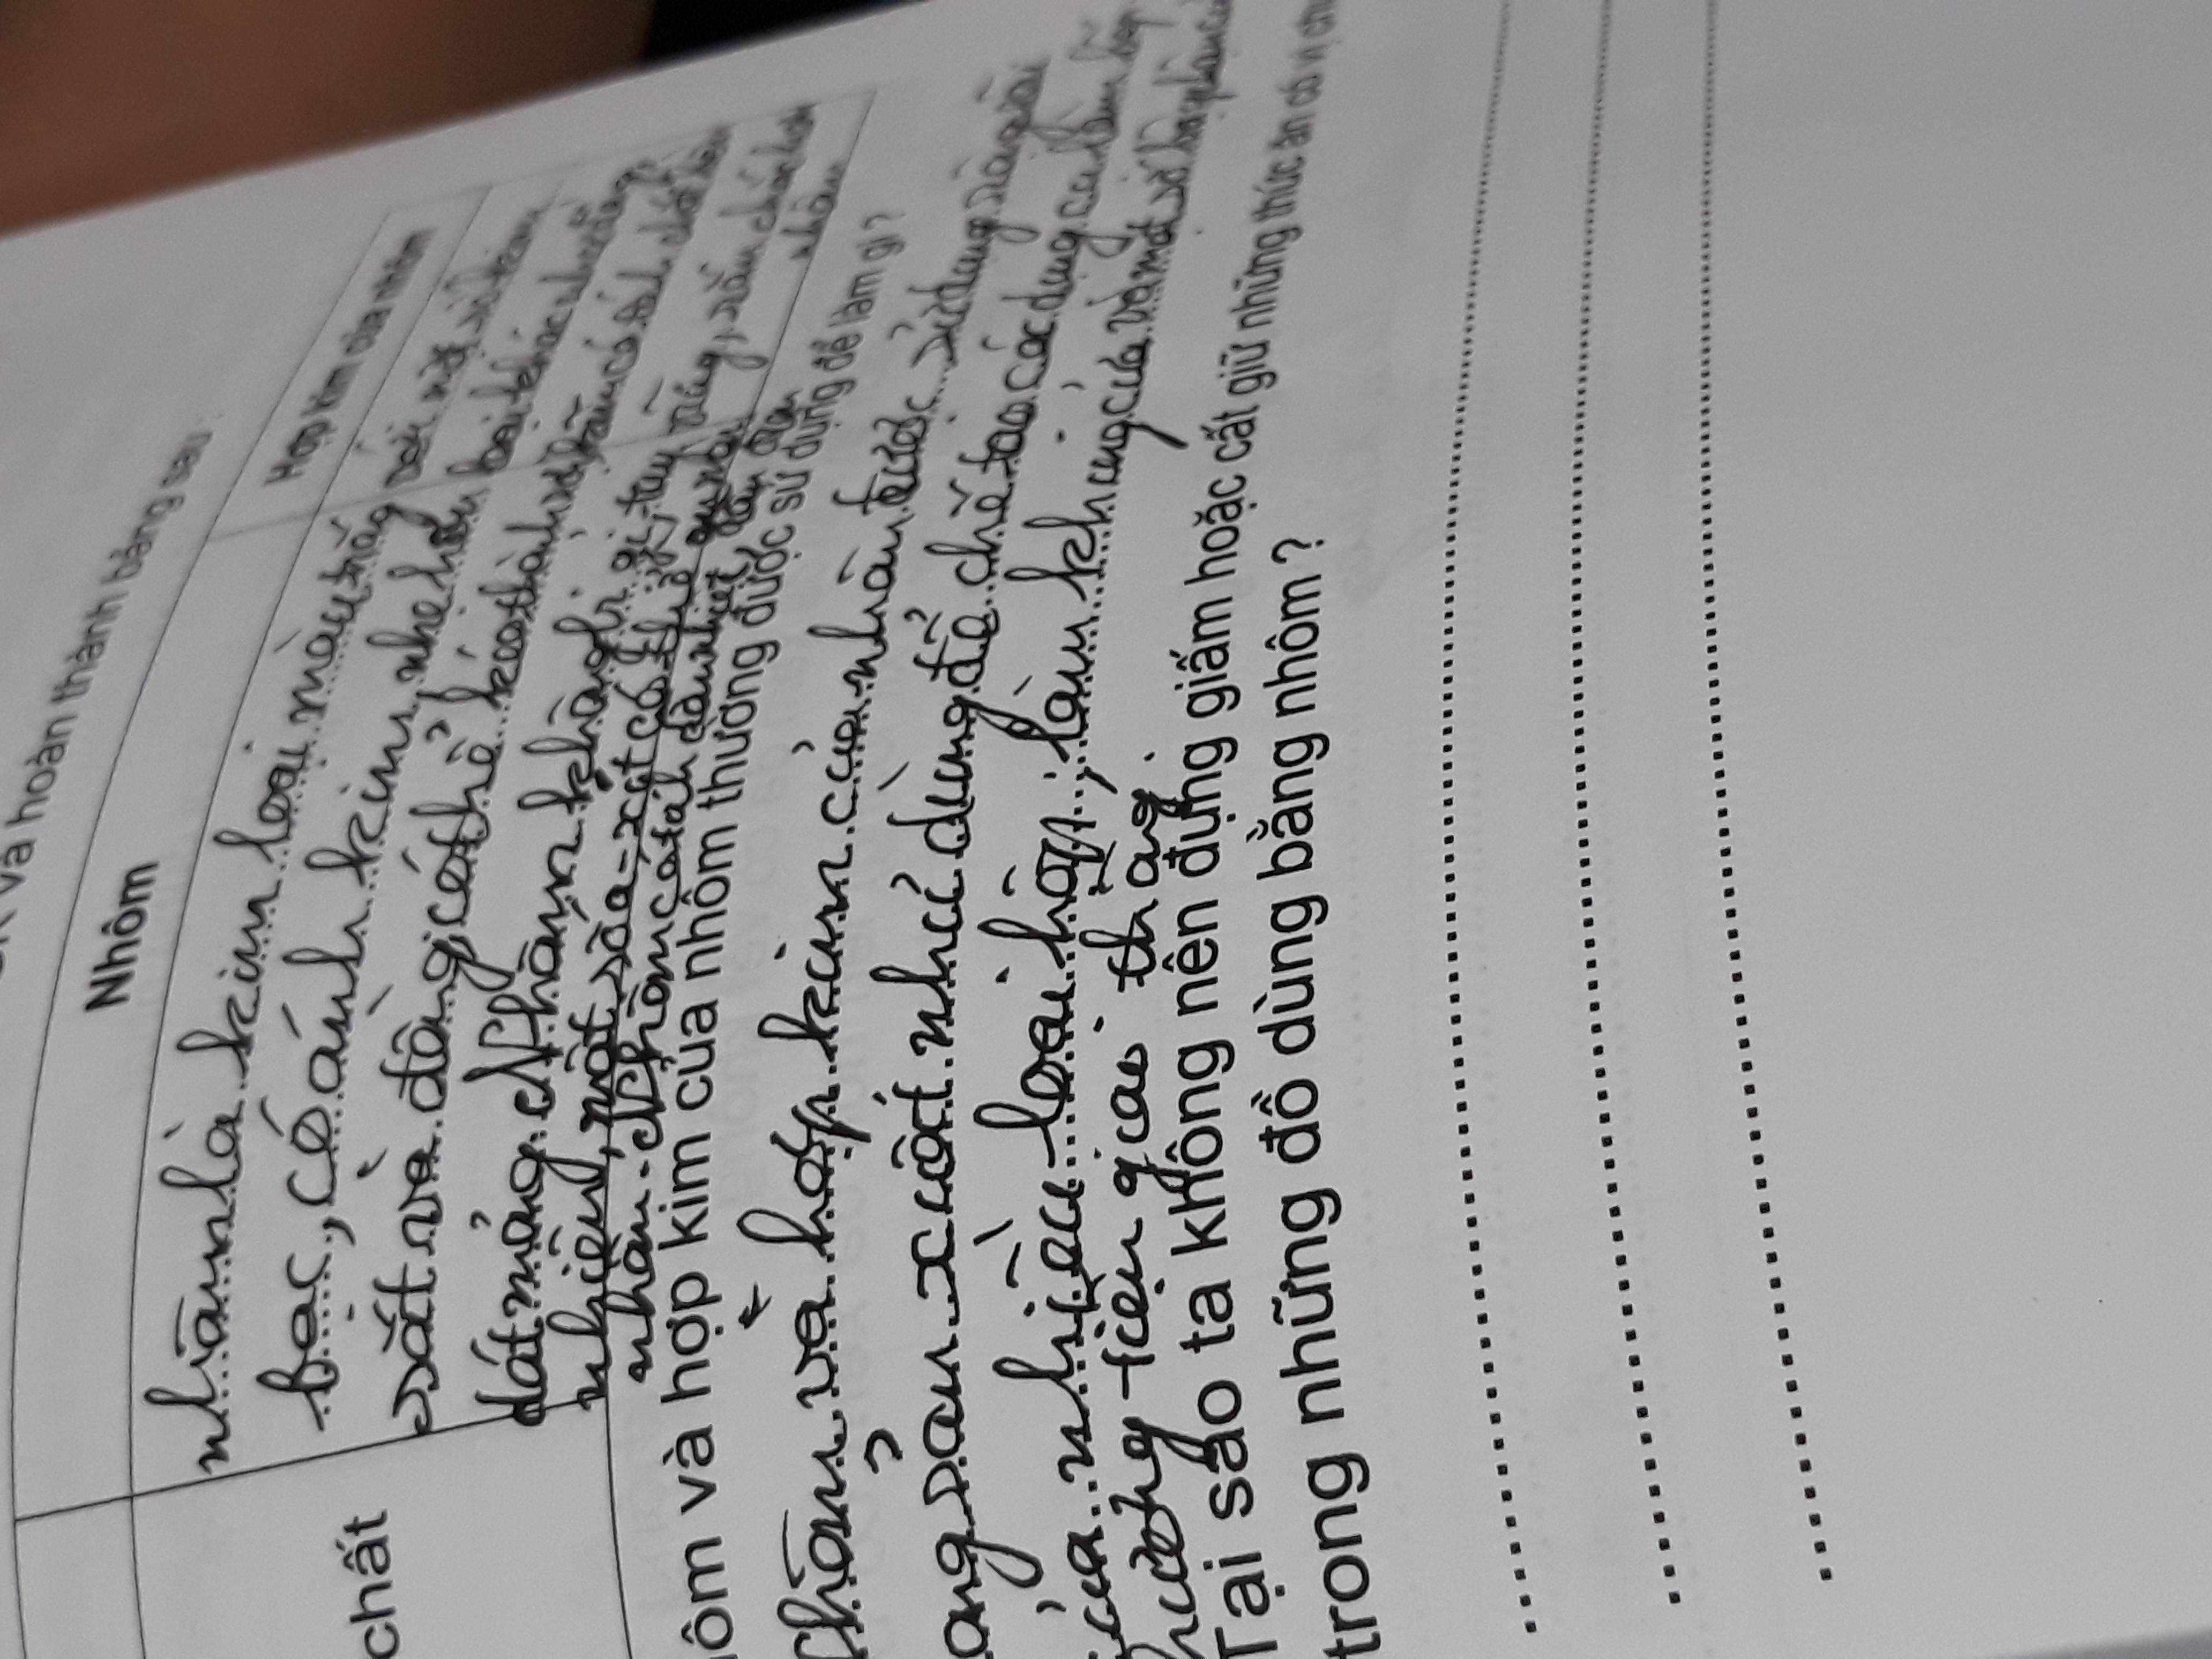 và hoàn thành bảng sau :
Nhôm
Hợp kim của nhôm
chất
nhôm là kim loại màu trắng
bạc, có ánh kim, nhẹ hơn
sắt và đồng; có thể kéo thành sợi,
dát mỏng. Nhôm không bị gỉ, tuy
nhiên, một số a-xít có thể ăn mòn
nhôm. Nhôm có tính dẫn nhiệt, dẫn điện
bền vững, rắn chắc hơn
nhôm
ôm và hợp kim của nhôm thường được sử dụng để làm gì ?
Nhôm và hợp kim của nhôm được sử dụng rộng rãi
trong sản xuất như dùng để chế tạo các dụng cụ làm bếp
vỏ của nhiều loại hộp; làm khung cửa và một số bộ phận của
phương tiện giao thông.
Tại sao ta không nên đựng giấm hoặc cất giữ những thức ăn có vị chua
trong những đồ dùng bằng nhôm ?